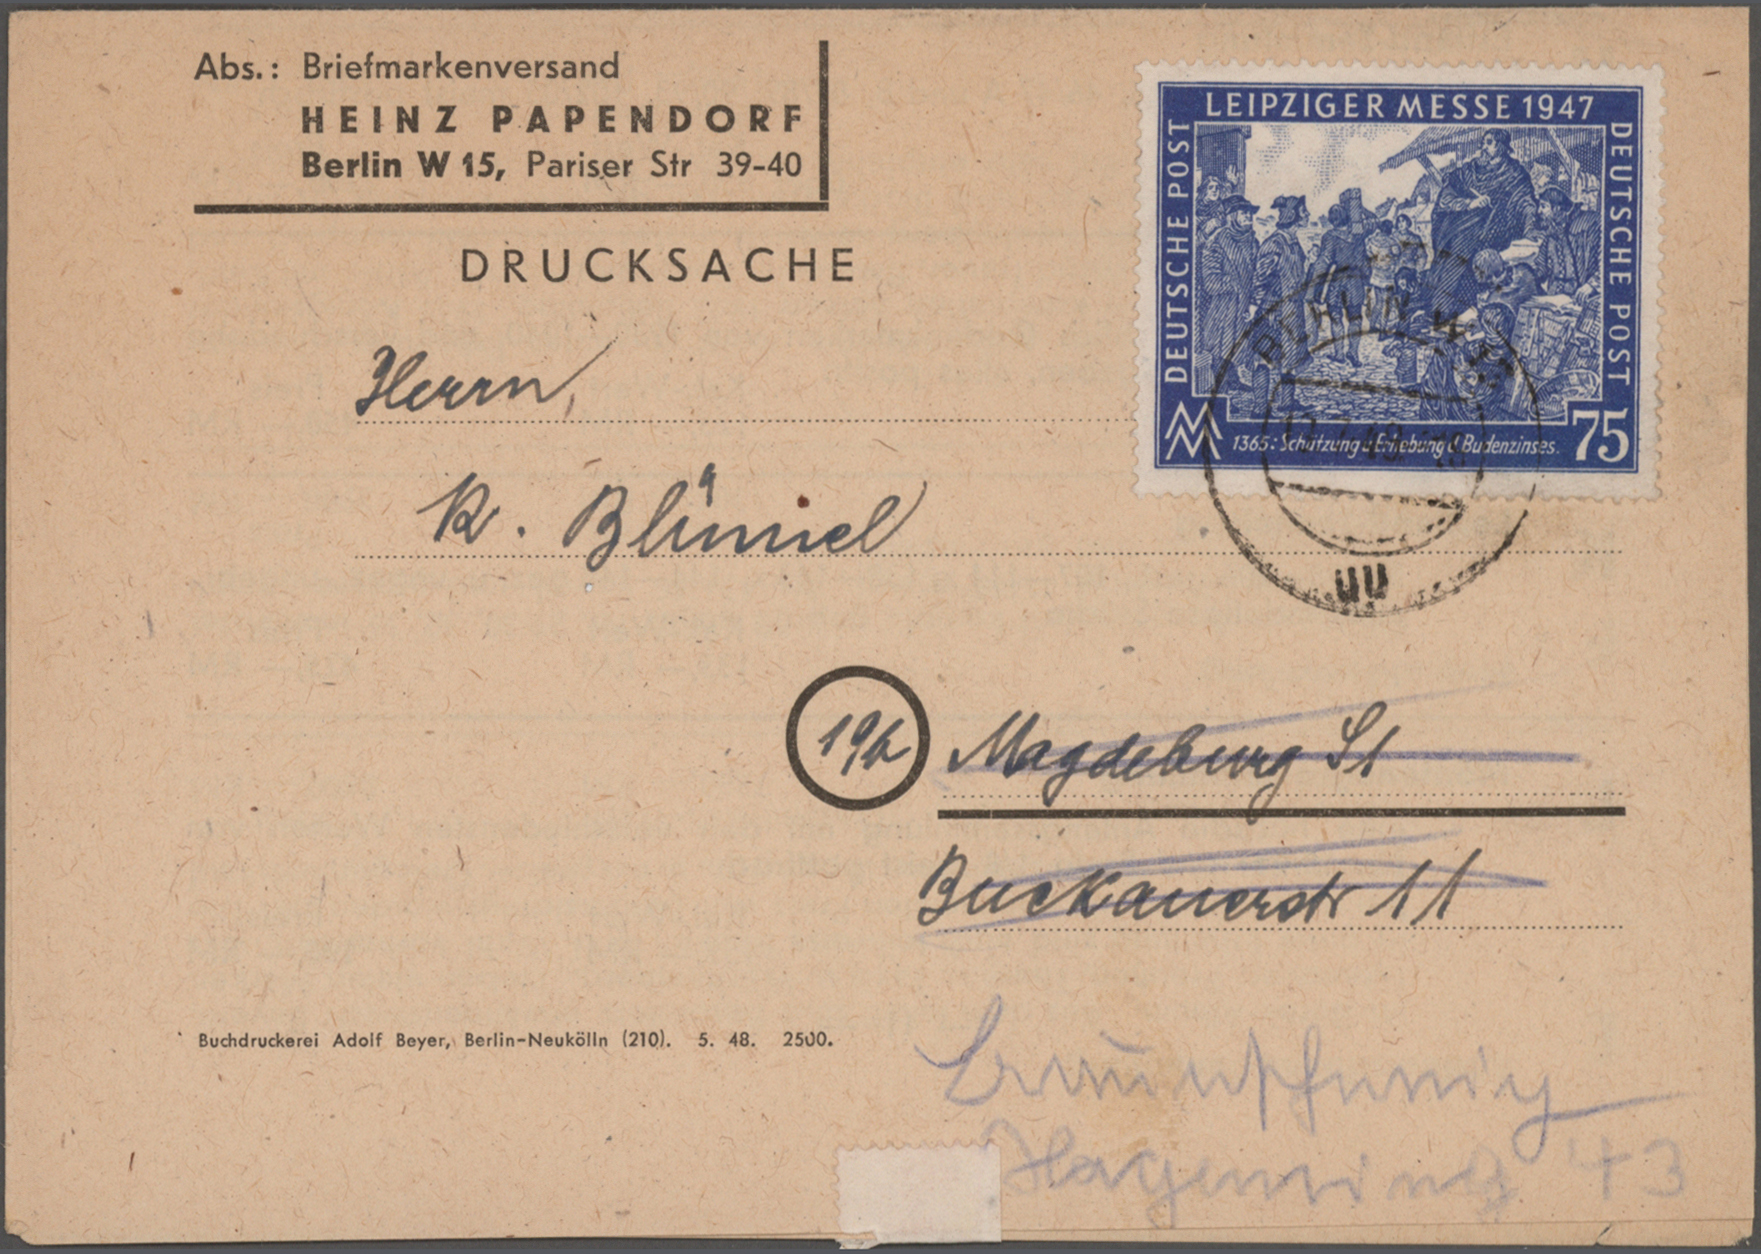 Abs.: Briefmarkenversand
HEINZ PAPENDORF
Berlin W 15, Pariser Str 39-40
DRUCKSACHE
LEIPZIGER MESSE 1947
DEUTSCHE POST
DEUTSCHE POST
1365: Schätzung u. Erhebung d. Budenzinses.
75
BERLIN W
uu
Herrn
K. Blümel
19b
Magdeburg S1
Buckauerstr 11
Buchdruckerei Adolf Beyer, Berlin-Neukölln (210). 5. 48. 2500.
Braunschweig
Hagenring 43